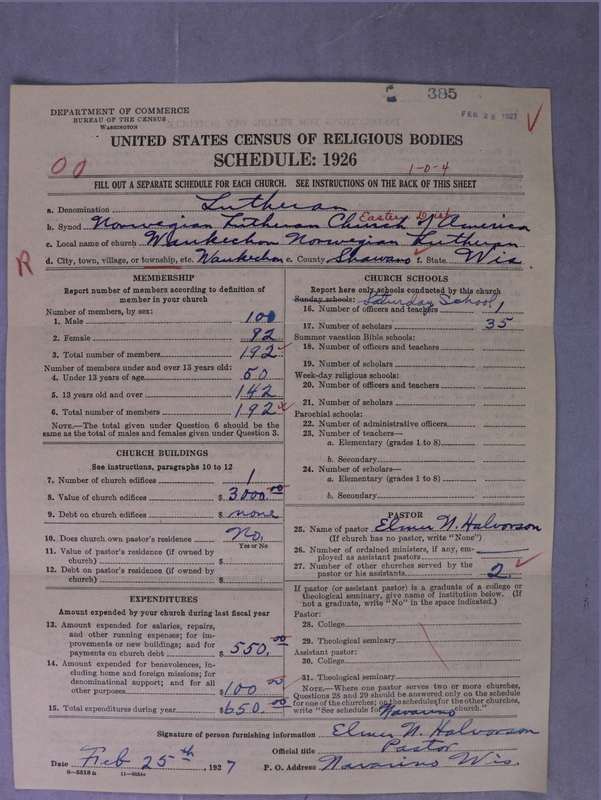 385
DEPARTMENT OF COMMERCE
BUREAU OF THE CENSUS
WASHINGTON
FEB 28 1927
UNITED STATES CENSUS OF RELIGIOUS BODIES
SCHEDULE: 1926
00
1-0-4
FILL OUT A SEPARATE SCHEDULE FOR EACH CHURCH. SEE INSTRUCTIONS ON THE BACK OF THIS SHEET
a. Denomination Lutheran
Eastern Dist
b. Synod Norwegian Lutheran Church of America
c. Local name of church Waukechon Norwegian Lutheran
R
d. City, town, village, or township, etc. Waukechon e. County Shawano f. State Wis
MEMBERSHIP
Report number of members according to definition of
member in your church
Number of members, by sex:
1. Male 100
2. Female 92
3. Total number of members 192
Number of members under and over 13 years old:
4. Under 13 years of age 50
5. 13 years old and over 142
6. Total number of members 192
NOTE.—The total given under Question 6 should be the
same as the total of males and females given under Question 3.
CHURCH BUILDINGS
See instructions, paragraphs 10 to 12
7. Number of church edifices 1
8. Value of church edifices $ 3000.00
9. Debt on church edifices $ none
10. Does church own pastor's residence? No.
Yes or No
11. Value of pastor's residence (if owned by
church) $
12. Debt on pastor's residence (if owned by
church) $
EXPENDITURES
Amount expended by your church during last fiscal year
13. Amount expended for salaries, repairs,
and other running expenses; for im-
provements or new buildings; and for
payments on church debt $ 550.00
14. Amount expended for benevolences, in-
cluding home and foreign missions; for
denominational support; and for all
other purposes $ 100 00
15. Total expenditures during year $ 650.00
CHURCH SCHOOLS
Report here only schools conducted by this church
Sunday schools: Saturday School
16. Number of officers and teachers 1
17. Number of scholars 35
Summer vacation Bible schools:
18. Number of officers and teachers
19. Number of scholars
Week-day religious schools:
20. Number of officers and teachers
21. Number of scholars
Parochial schools:
22. Number of administrative officers
23. Number of teachers—
a. Elementary (grades 1 to 8)
b. Secondary
24. Number of scholars—
a. Elementary (grades 1 to 8)
b. Secondary
PASTOR
25. Name of pastor Elmer N. Halvorson
(If church has no pastor, write "None")
26. Number of ordained ministers, if any, em-
ployed as assistant pastors
27. Number of other churches served by the
pastor or his assistants 2.
If pastor (or assistant pastor) is a graduate of a college or
theological seminary, give name of institution below. (If
not a graduate, write "No" in the space indicated.)
Pastor:
28. College
29. Theological seminary
Assistant pastor:
30. College
31. Theological seminary
NOTE.—Where one pastor serves two or more churches,
Questions 28 and 29 should be answered only on the schedule
for one of the churches; on the schedules for the other churches,
write "See schedule for Navarino church."
Signature of person furnishing information Elmer N. Halvorson
Official title Pastor
Date Feb 25th, 1927 P. O. Address Navarino Wis.
8—5518 a